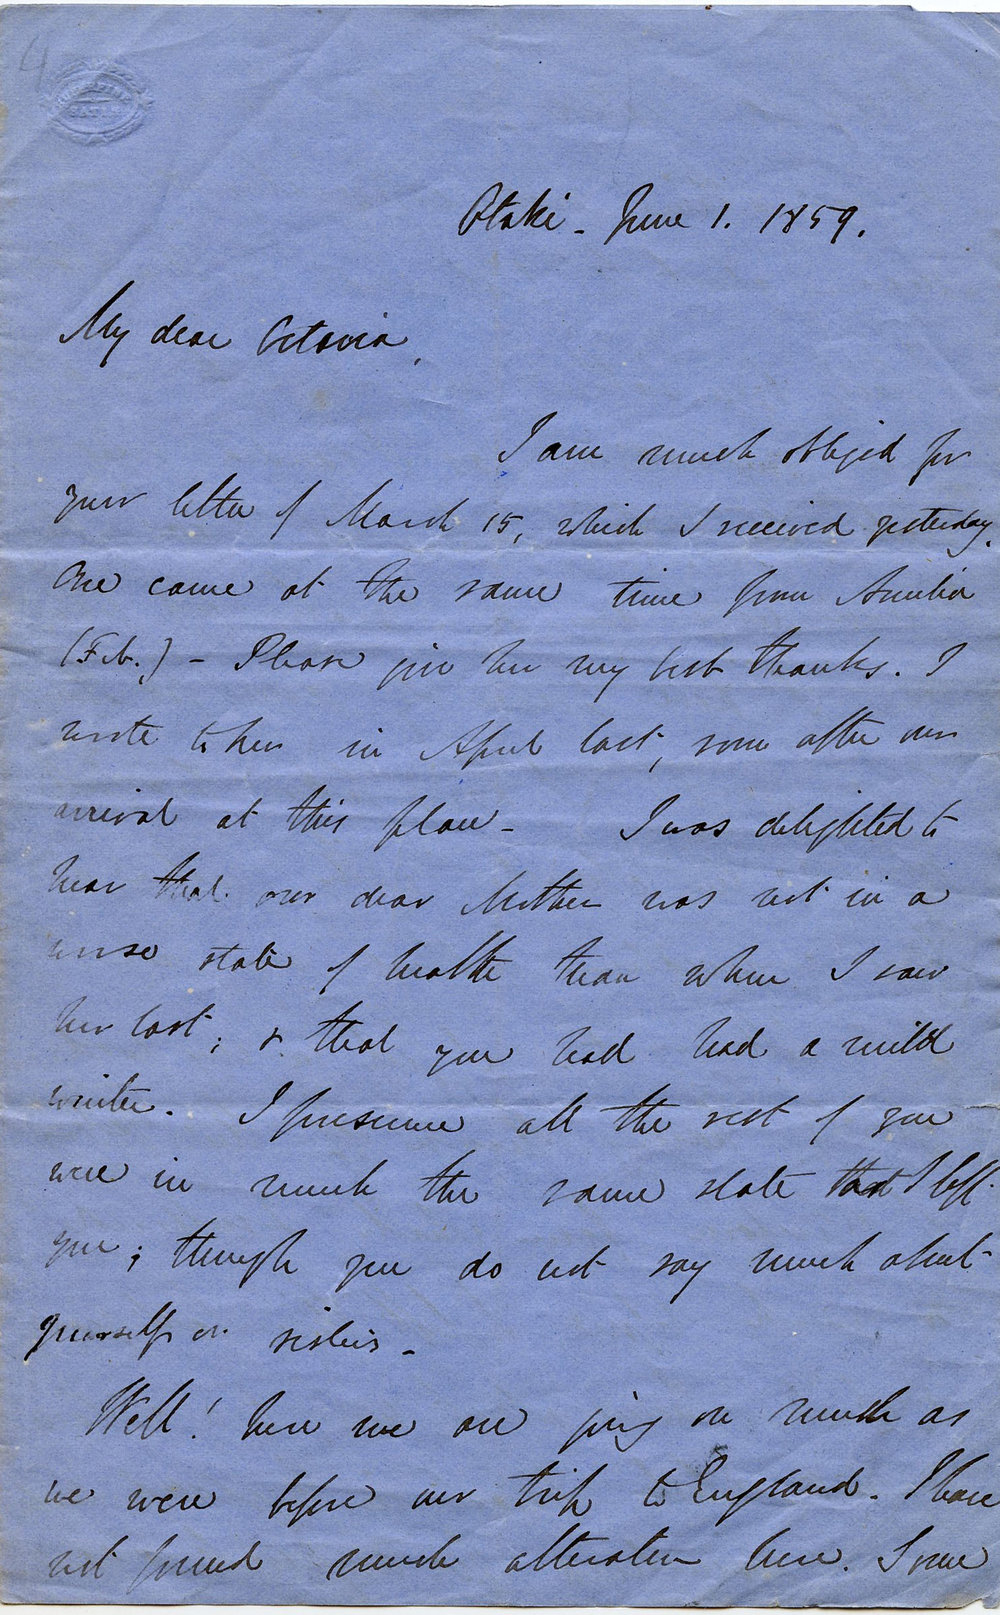 4
Otaki - June 1. 1859.
My dear Octavia,
I am much obliged for
your letter of March 15, which I received yesterday.
One came at the same time from Amelia
(Feb.) - Please give her my best thanks. I
wrote to her in April last, soon after our
arrival at this place - I was delighted to
hear that our dear Mother was not in a
worse state of health than when I saw
her last; & that you had had a mild
winter. I presume all the rest of you
were in much the same state that I left
you; though you do not say much about
yourself or sisters -
Well! here we are going on much as
we were before our trip to England. I have
not found much alteration here. Some